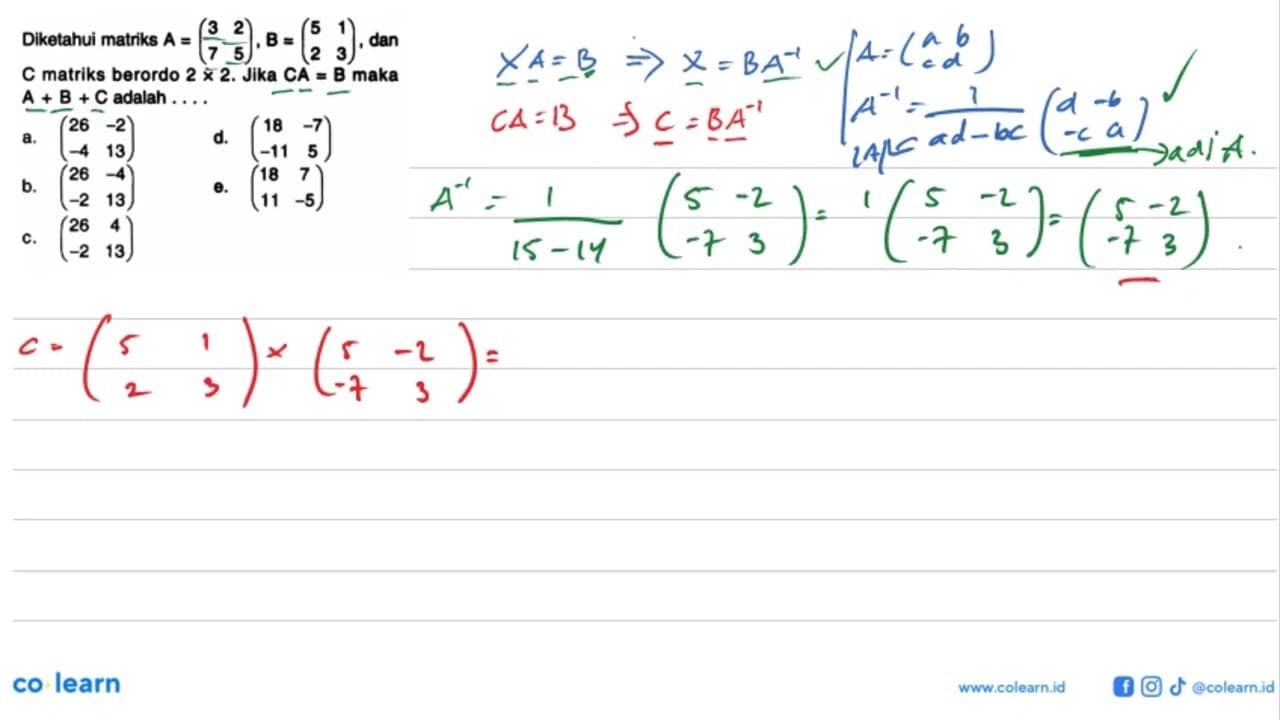 Diketahui matriks A = (3 2 7 5), B = (5 1 2 3), dan
C matriks berordo 2 x 2. Jika CA = B maka
A + B + C adalah . . . .
a. (26 -2 -4 13)
d. (18 -7 -11 5)
b. (26 -4 -2 13)
e. (18 7 11 -5)
c. (26 4 -2 13)
XA = B ⇒ X = BA⁻¹ ✓
CA = B ⇒ C = BA⁻¹
A = (a b c d)
A⁻¹ = 1/(ad - bc) (d -b -c a) ✓
→ adj A.
A⁻¹ = 1/(15 - 14) (5 -2 -7 3) = 1 (5 -2 -7 3) = (5 -2 -7 3)
C = (5 1 2 3) × (5 -2 -7 3) =
co learn
www.colearn.id
@colearn.id